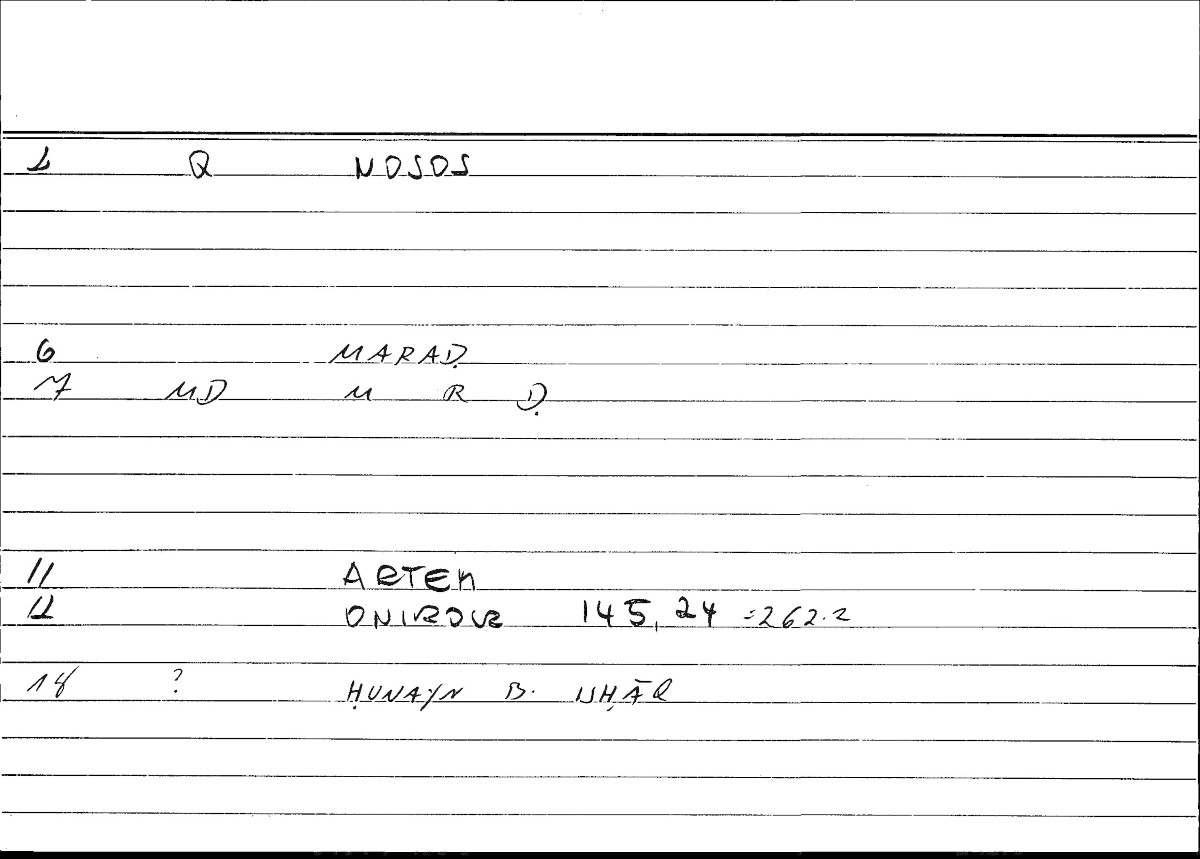 1 Q NOSOS
6 MARAḌ
7 MD M R Ḍ
11 ARTEM
12 ONIROCR 145,24 =262.2
18 ? ḤUNAYN B. ISḤĀQ